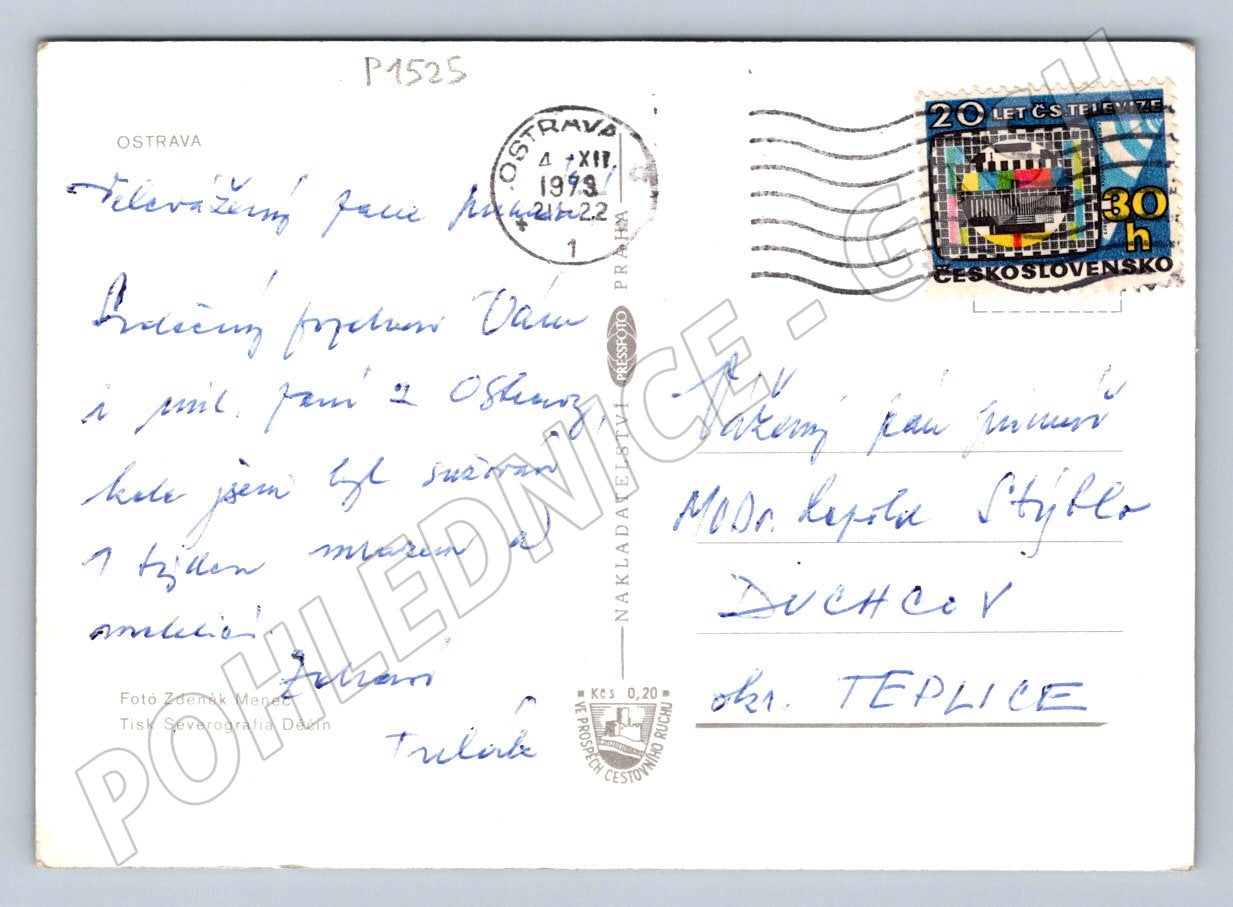 P1525
OSTRAVA
OSTRAVA
4. XII
1973
21-22
1
20 LET ČS. TELEVIZE
30
h
ČESKOSLOVENSKO
Velevážený pane primáři,
Srdečný pozdrav Vám
i mil. paní z Ostravy,
kde jsem byl sužován
1 týden mrazem a
Zdraví
Foto Zdeněk Menec
Tisk Severografia Děčín
NAKLADATELSTVÍ PRESSFOTO PRAHA
Kčs 0,20
VE PROSPĚCH CESTOVNÍHO RUCHU
Vážený pan primář
MUDr. Stýblo
DUCHCOV
okr. TEPLICE
POHLEDNICE - G